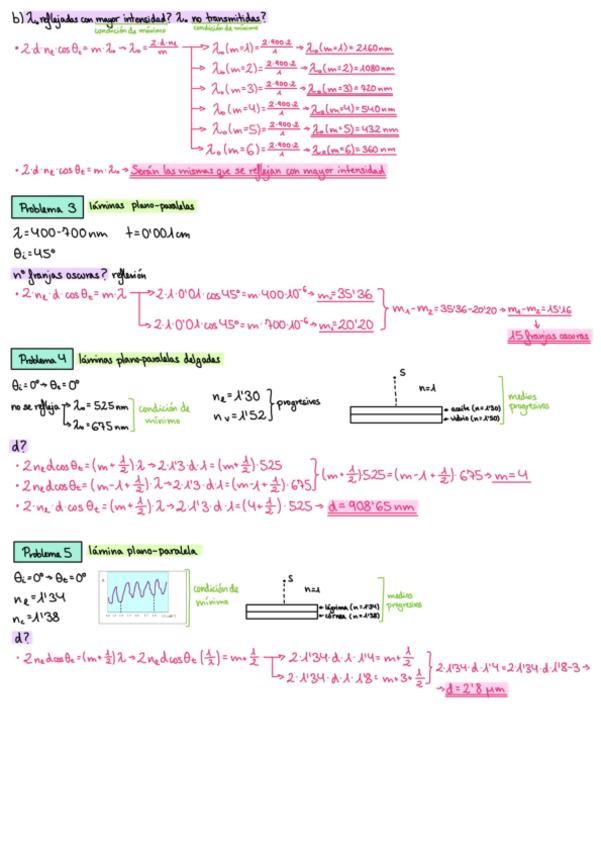 b) λ₀ reflejadas con mayor intensidad? λ₀ no transmitidas?
condición de máximo condición de mínimo
• 2·d·nₑ·cosθₜ=m·λ₀→λ₀=2·d·nₑ/m → λ₀(m=1)=2·900·2/1→λ₀(m=1)=2160nm
λ₀(m=2)=2·900·2/1→λ₀(m=2)=1080nm
λ₀(m=3)=2·900·2/1→λ₀(m=3)=720nm
λ₀(m=4)=2·900·2/1→λ₀(m=4)=540nm
λ₀(m=5)=2·900·2/1→λ₀(m=5)=432nm
λ₀(m=6)=2·900·2/1→λ₀(m=6)=360nm
• 2·d·nₑ·cosθₜ=m·λ₀→Serán las mismas que se reflejan con mayor intensidad
Problema 3 láminas plano-paralelas
λ=400-700nm t=0'001cm
θᵢ=45°
nº franjas oscuras? reflexión
• 2·nₑ·d·cosθₜ=m·λ →2·1·0'01·cos45°=m·400·10⁻⁶→m₁=35'36
→2·1·0'01·cos45°=m·700·10⁻⁶→m₂=20'20
m₁-m₂=35'36-20'20→m₁-m₂=15'16
15 franjas oscuras
Problema 4 láminas plano-paralelas delgadas
θᵢ=0°→θₜ=0°
no se refleja →λ₀=525nm
→λ₀=675nm
condición de mínimo
nₑ=1'30
nᵥ=1'52
progresivos
S
n=1
aceite (n=1'30)
vidrio (n=1'50)
medios progresivos
d?
• 2nₑdcosθₜ=(m+1/2)·λ→2·1'3·d·1=(m+1/2)·525
• 2nₑdcosθₜ=(m-1+1/2)·λ→2·1'3·d·1=(m-1+1/2)·675
(m+1/2)525=(m-1+1/2)·675→m=4
• 2·nₑ·d·cosθₜ=(m+1/2)·λ→2·1'3·d·1=(4+1/2)·525→d=908'65nm
Problema 5 lámina plano-paralela
θᵢ=0°→θₜ=0°
nₑ=1'34
n꜀=1'38
condición de mínimo
S
n=1
lágrima (n=1'34)
córnea (n=1'38)
medios progresivos
d?
• 2nₑdcosθₜ=(m+1/2)λ→2nₑdcosθₜ(1/λ)=m+1/2 →2·1'34·d·1·1'4=m+1/2
→2·1'34·d·1·1'8=m+3+1/2
2·1'34·d·1'4=2·1'34·d·1'8-3→
→d=2'8 μm